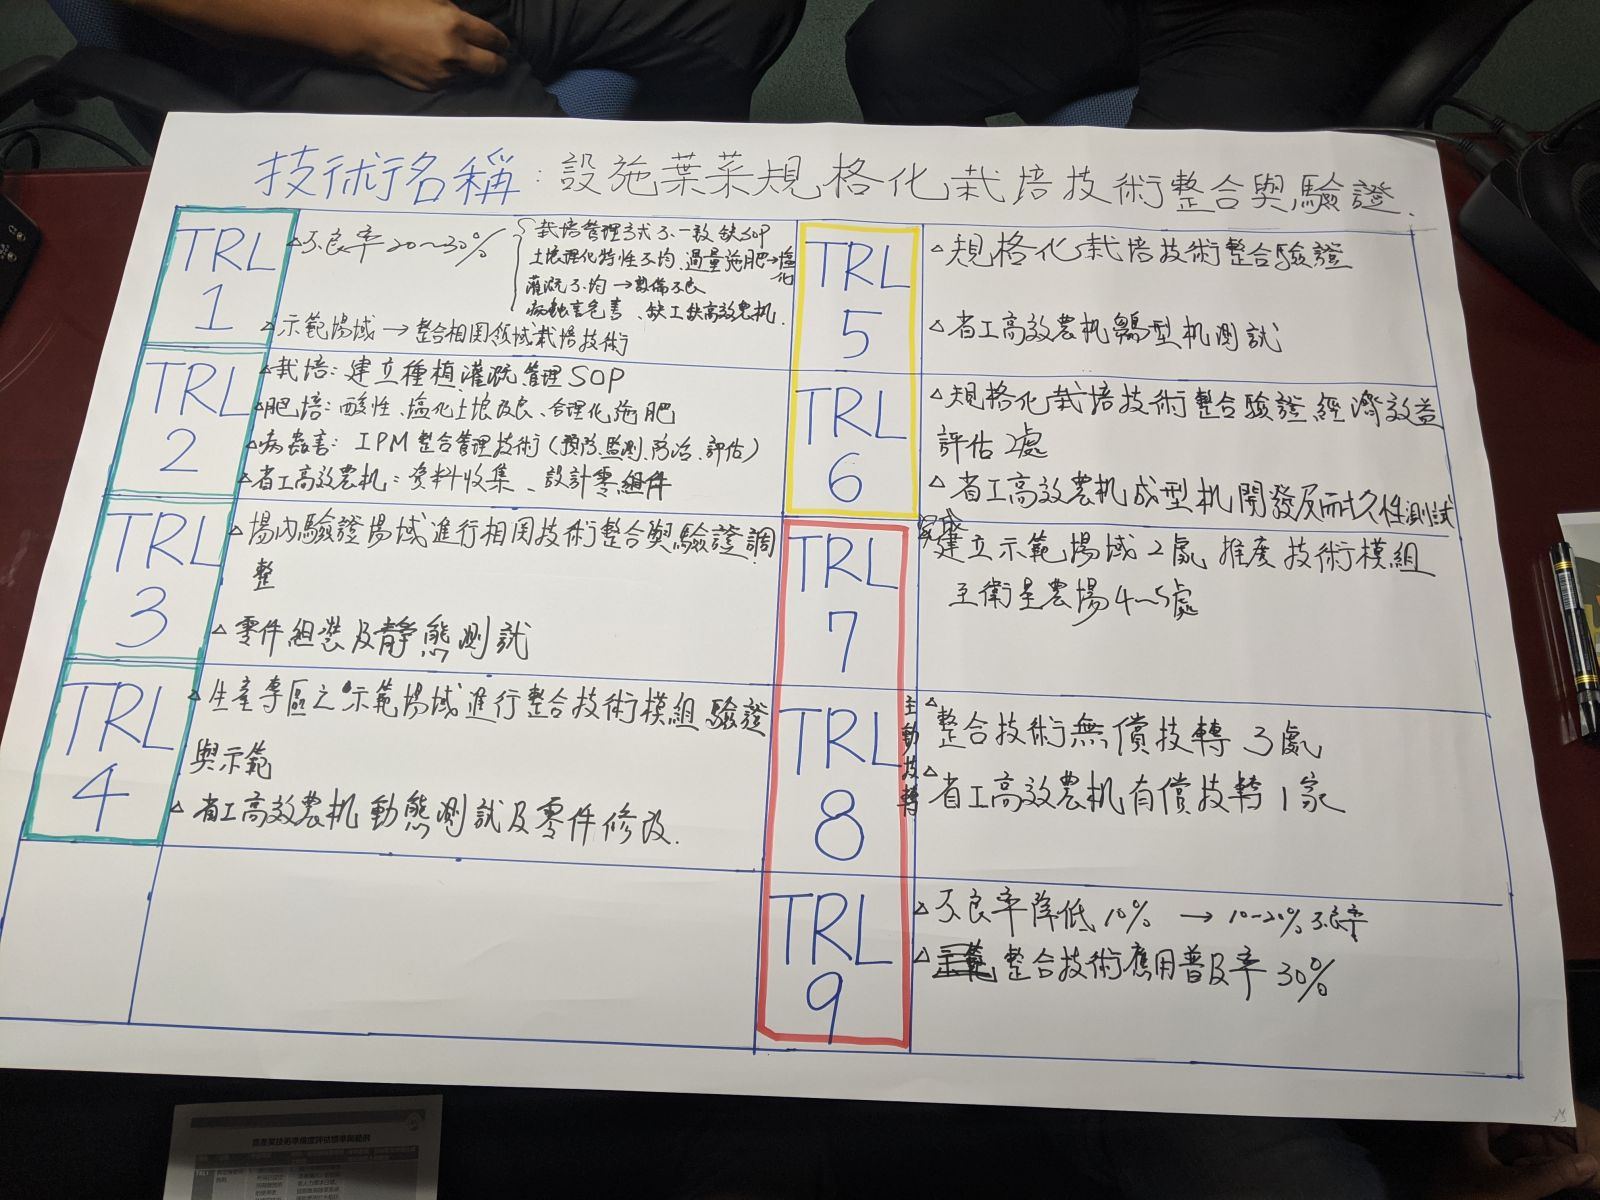 技術名稱：設施葉菜規格化栽培技術整合與驗證.
TRL 1
△不良率20~30%
栽培管理方式不一致 缺SOP
土壤理化特性不均、過量施肥→塩化
灌溉不均→設備不良
病蟲害危害、缺工缺高效農机.
△示範場域→整合相関領域栽培技術
TRL 2
△栽培：建立種植灌溉管理SOP
△肥培：酸性、塩化土壤改良、合理化施肥
△病蟲害：IPM整合管理技術(預防、監測、防治、評估)
△省工高效農机：資料收集、設計零組件
TRL 3
△場内驗證場域進行相関技術整合與驗證調
整
△零件組裝及靜態測試
TRL 4
△生產專區之示範場域進行整合技術模組驗證
與示範
△省工高效農机動態測試及零件修改.
TRL 5
△規格化栽培技術整合驗證
△省工高效農机雛型机測試
TRL 6
△規格化栽培技術整合驗證經濟效益
評估2處
△省工高效農机成型机開發及耐久性測試
TRL 7
完成
建立示範場域2處、推広技術模組
至衛星農場4~5處
TRL 8
主動技轉
△整合技術無償技轉3處
△省工高效農机有償技轉1家
TRL 9
△不良率降低10% → 10~20%不良率
△整合技術應用普及率30%
TRL1